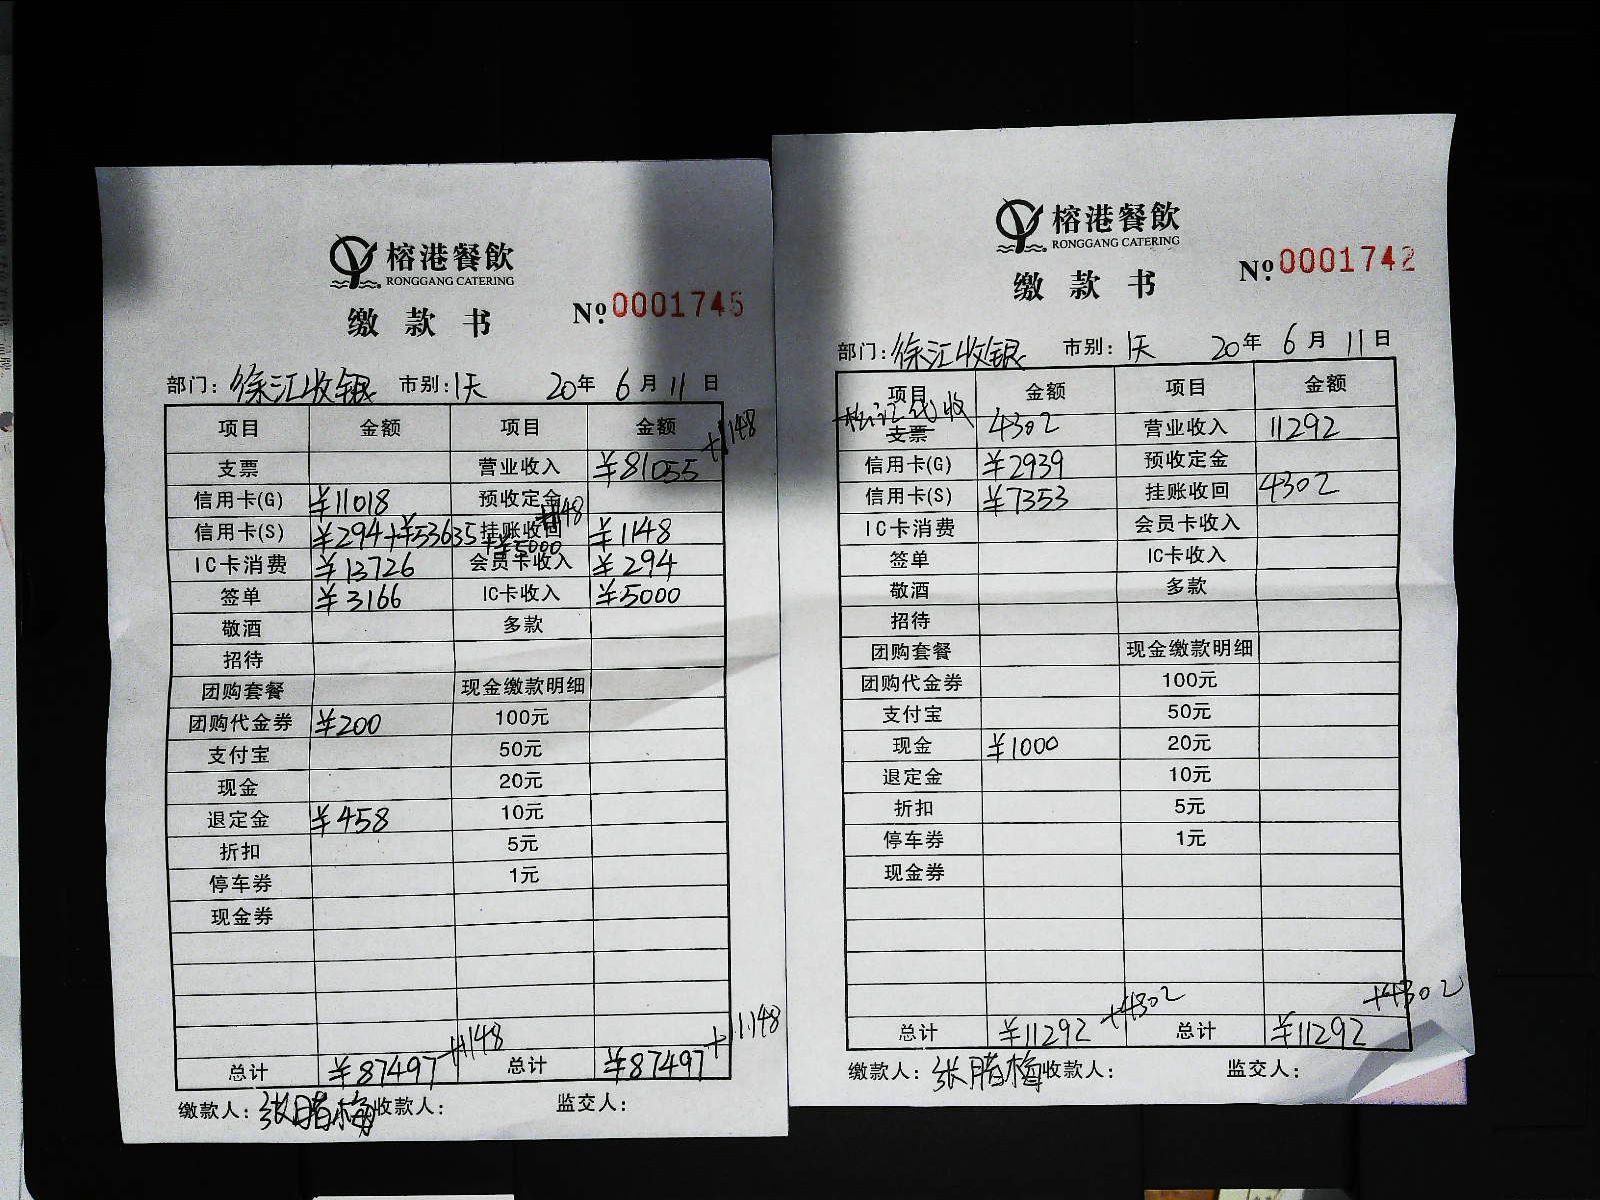 榕港餐飲
RONGGANG CATERING
缴款书
№ 0001745
部门: 徐汇收银 市别: 1天 20年 6月 11日
项目 金额 项目 金额 +1148
支票 营业收入 ¥81055
信用卡(G) ¥11018 预收定金
信用卡(S) ¥294+¥53635+¥5000 +1148 挂账收回 ¥1148
IC卡消费 ¥13726 会员卡收入 ¥294
签单 ¥3166 IC卡收入 ¥5000
敬酒 多款
招待
团购套餐 现金缴款明细
团购代金券 ¥200 100元
支付宝 50元
现金 20元
退定金 ¥458 10元
折扣 5元
停车券 1元
现金券
总计 ¥87497 +1148 总计 ¥87497 +1148
缴款人: 收款人: 监交人:
榕港餐飲
RONGGANG CATERING
缴款书
№ 0001742
部门: 徐汇收银 市别: 1天 20年 6月 11日
项目 金额 项目 金额
支票 4302 营业收入 11292
信用卡(G) ¥2939 预收定金
信用卡(S) ¥7353 挂账收回 4302
IC卡消费 会员卡收入
签单 IC卡收入
敬酒 多款
招待
团购套餐 现金缴款明细
团购代金券 100元
支付宝 50元
现金 ¥1000 20元
退定金 10元
折扣 5元
停车券 1元
现金券
总计 ¥11292 +4302 总计 ¥11292 +4302
缴款人: 收款人: 监交人: